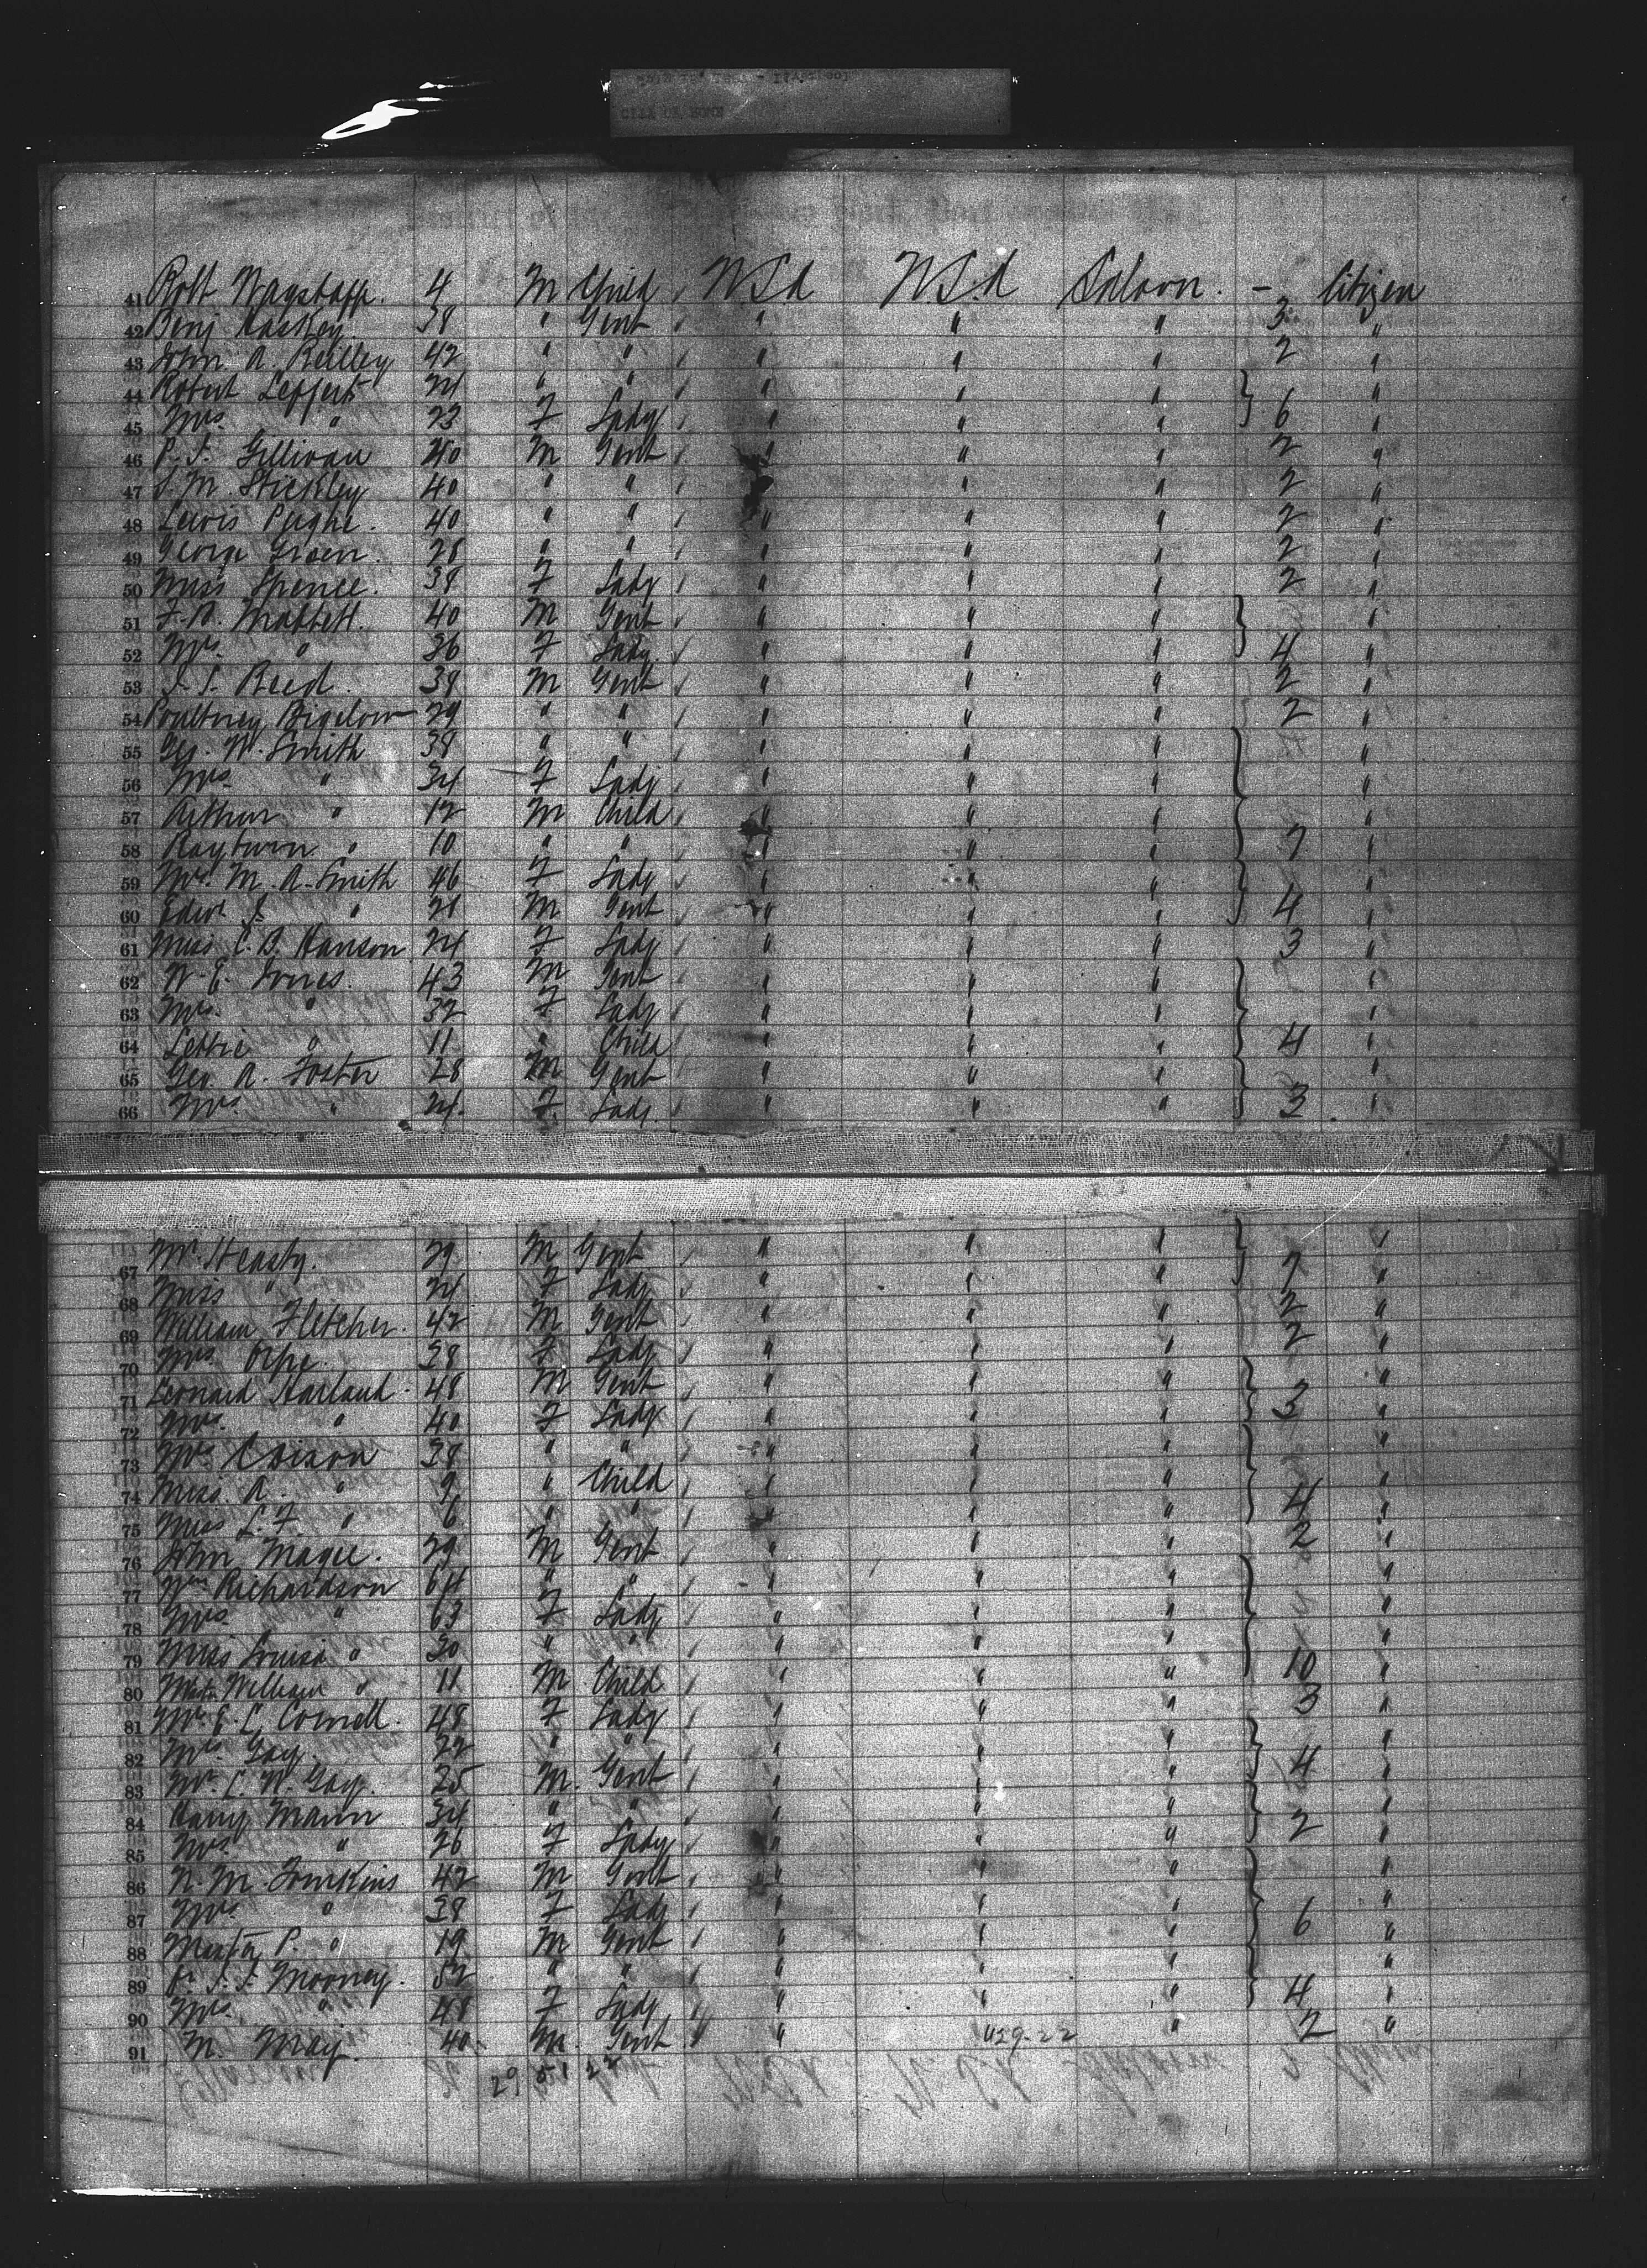 CITY OF ROME
41 Robt Wagstaff. 4 M Child U.S.A U.S.A Saloon. - Citizen
42 Benj 38 " Gent " " " 3 "
43 John A. Reilley 42 " " " " " 2 "
44 Robert Leffert 24 " " " " " "
45 Mrs. " 23 F Lady " " " 6 "
46 P. J. Gillivan 40 M Gent " " " 2 "
47 J. M. Stickley 40 " " " " " 2 "
48 Lewis Pughe. 40 " " " " " 2 "
49 George Green. 28 " " " " " 2 "
50 Miss Spence. 38 F Lady " " " 2 "
51 F. A. Mabbett. 40 M Gent " " " "
52 Mrs. " 36 F Lady " " " 4 "
53 J. S. Reed. 38 M Gent " " " 2 "
54 Poultney Bigelow 29 " " " " " 2 "
55 Geo. W. Smith 38 " " " " " "
56 Mrs. " 34 F Lady " " " "
57 Arthur " 12 M Child " " " "
58 Rayburn " 10 " " " " " 7 "
59 Mrs. M. A. Smith 46 F Lady " " " "
60 Edw. S. " 21 M Gent " " " 4 "
61 Miss C. B. Hanson 24 F Lady " " " 3 "
62 W. E. Jones. 43 M Gent " " " "
63 Mrs. " 32 F Lady " " " "
64 Lettie " 11 " Child " " " 4 "
65 Geo. A. Foster 28 M Gent " " " "
66 Mrs " 24 F. Lady. " " " 3 "
67 Mr. Heasty. 29 M Gent " " " 7 "
68 Miss " 24 F Lady " " " 2 "
69 William Fletcher. 42 M Gent " " " 2 "
70 Mrs Orpe. 38 F Lady " " " "
71 Leonard Harland. 48 M Gent " " " 3 "
72 Mrs. " 40 F Lady " " " "
73 Mrs Coixon 38 " " " " " "
74 Miss. A. " 9 " Child " " " 4 "
75 Miss L. F. " 6 " " " " " 2 "
76 John Magee. 29 M Gent " " " "
77 Wm Richardson 64 " " " " " "
78 Mrs " 63 F Lady " " " "
79 Miss Louisa " 30 " " " " " 10 "
80 Mastr William " 11 M Child " " " 3 "
81 Mrs E. C. Cornell. 48 F Lady " " " "
82 Mrs. Gay. 22 " " " " " 4 "
83 Mr. C. W. Gay. 25 M. Gent " " " "
84 Harry Mann 34 " " " " " 2 "
85 Mrs. " 26 F Lady " " " "
86 N. M. Tomkins 42 M Gent " " " "
87 Mrs. " 38 F Lady " " " 6 "
88 Master P. " 19 M Gent " " " "
89 J. J. Mooney. 52 " " " " " 4 "
90 Mrs. " 48 F Lady " " " 2 "
91 M. May. 40. M. Gent " " " "
29 51 22